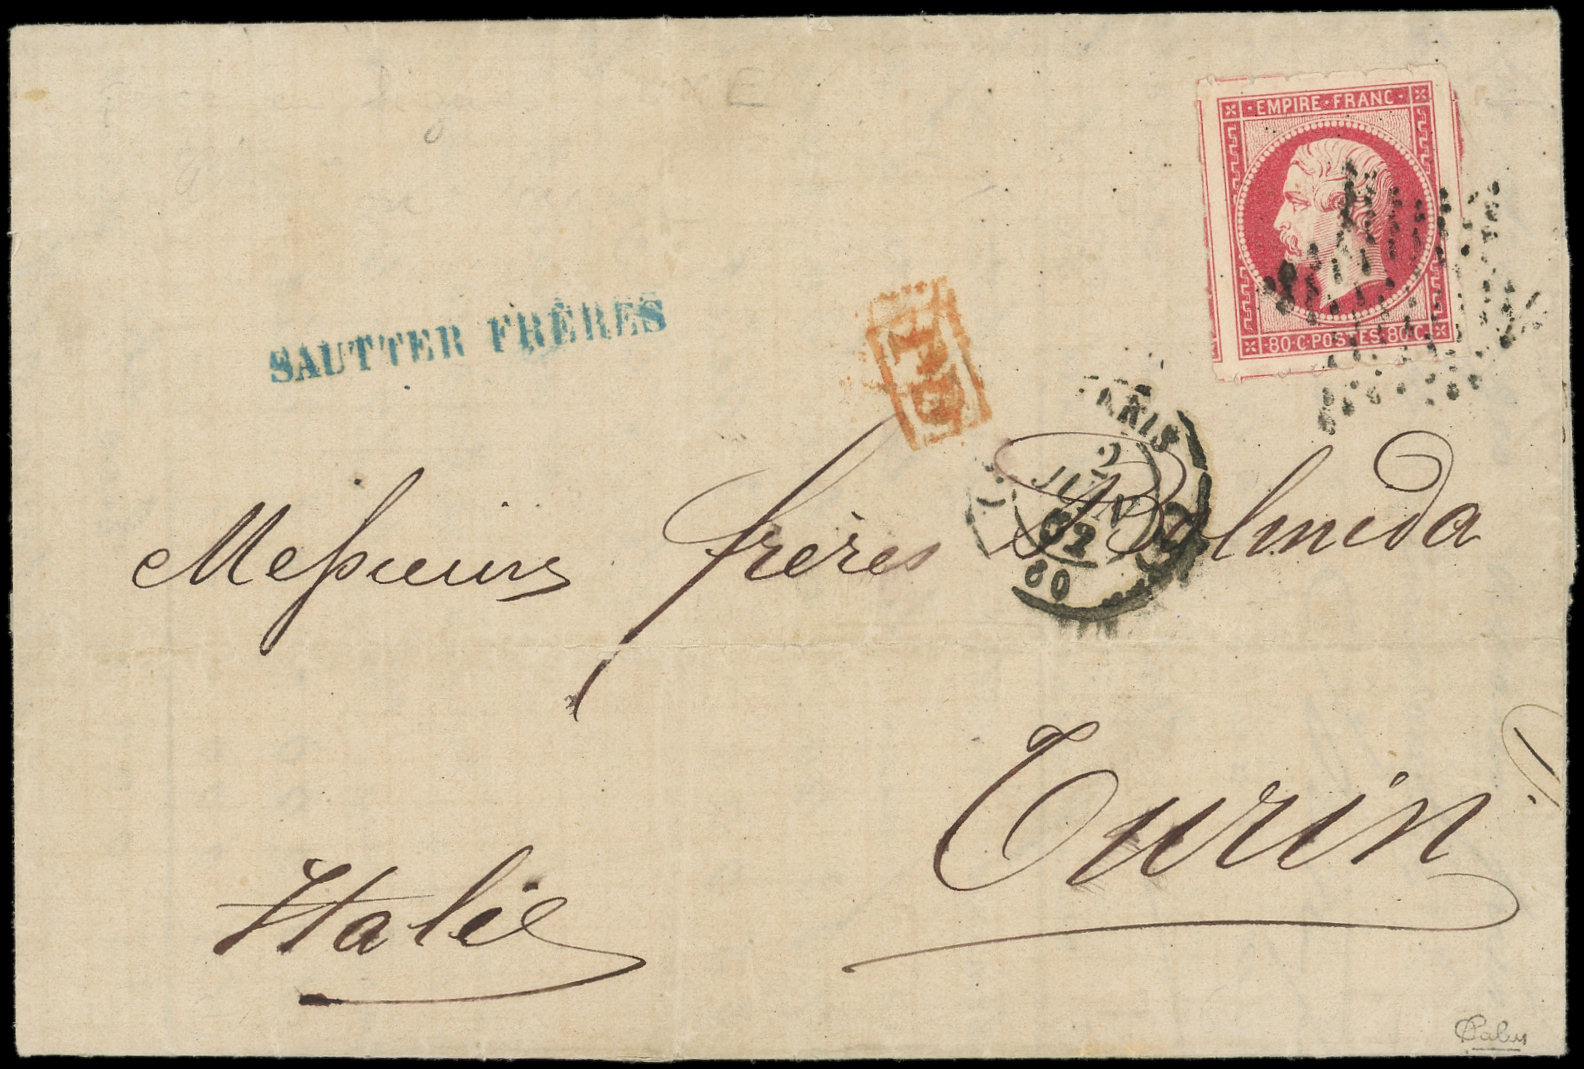 EMPIRE · FRANC ·
80 · C · POSTES · 80 C ·
SAUTTER FRÈRES
PD
PARIS
2
JUIN
62
60
Messieurs frères Bolmida
Turin
Italie
Calves